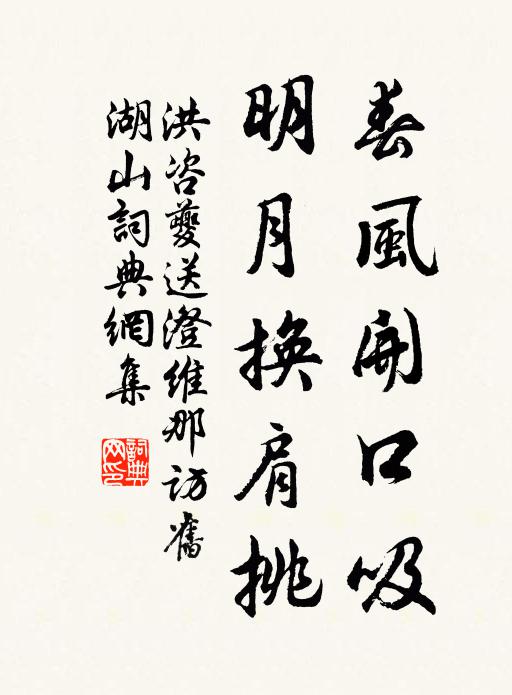 春風開口吸
明月換肩挑
洪咨夔送澄維那訪舊
湖山詞典網集
詞典網印